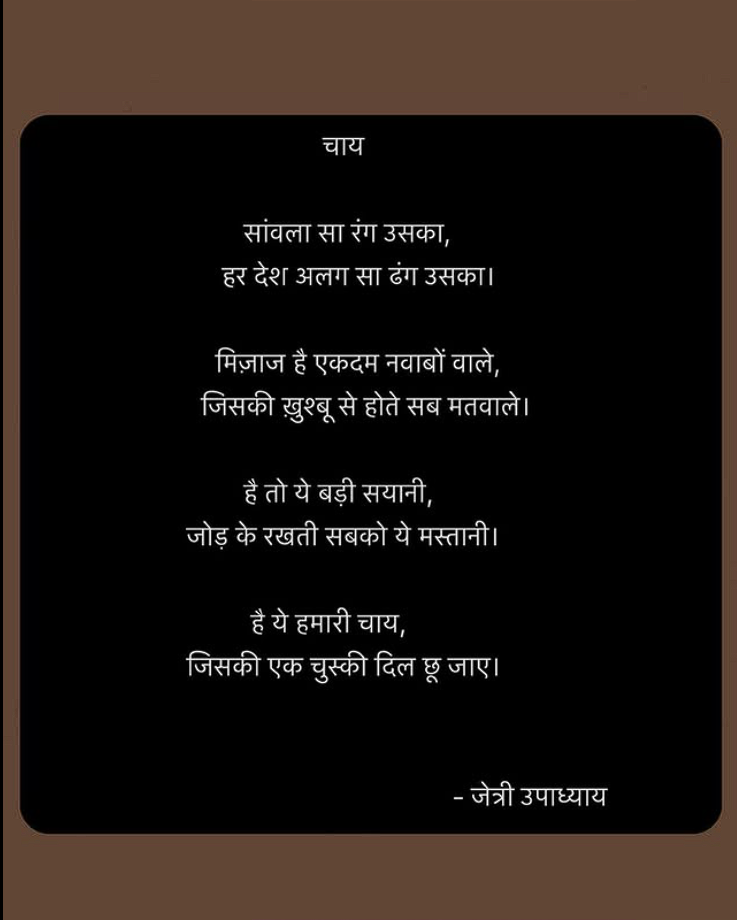 चाय
सांवला सा रंग उसका,
हर देश अलग सा ढंग उसका।
मिज़ाज है एकदम नवाबों वाले,
जिसकी ख़ुश्बू से होते सब मतवाले।
है तो ये बड़ी सयानी,
जोड़ के रखती सबको ये मस्तानी।
है ये हमारी चाय,
जिसकी एक चुस्की दिल छू जाए।
- जेत्री उपाध्याय